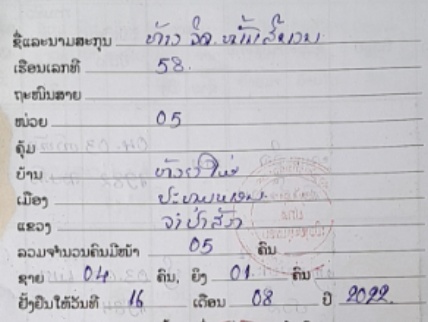 ຊື່ແລະນາມສະກຸນ ທ້າວ
ເຮືອນເລກທີ 58.
ຖະໜົນສາຍ
ໜ່ວຍ 05
ຄຸ້ມ
ບ້ານ
ເມືອງ
ແຂວງ ຈຳປາສັກ
ລວມຈຳນວນຄົນມີໜ້າ 05 ຄົນ
ຊາຍ 04 ຄົນ, ຍິງ 01 ຄົນ
ຢັ້ງຢືນໃຫ້ວັນທີ 16 ເດືອນ 08 ປີ 2022.